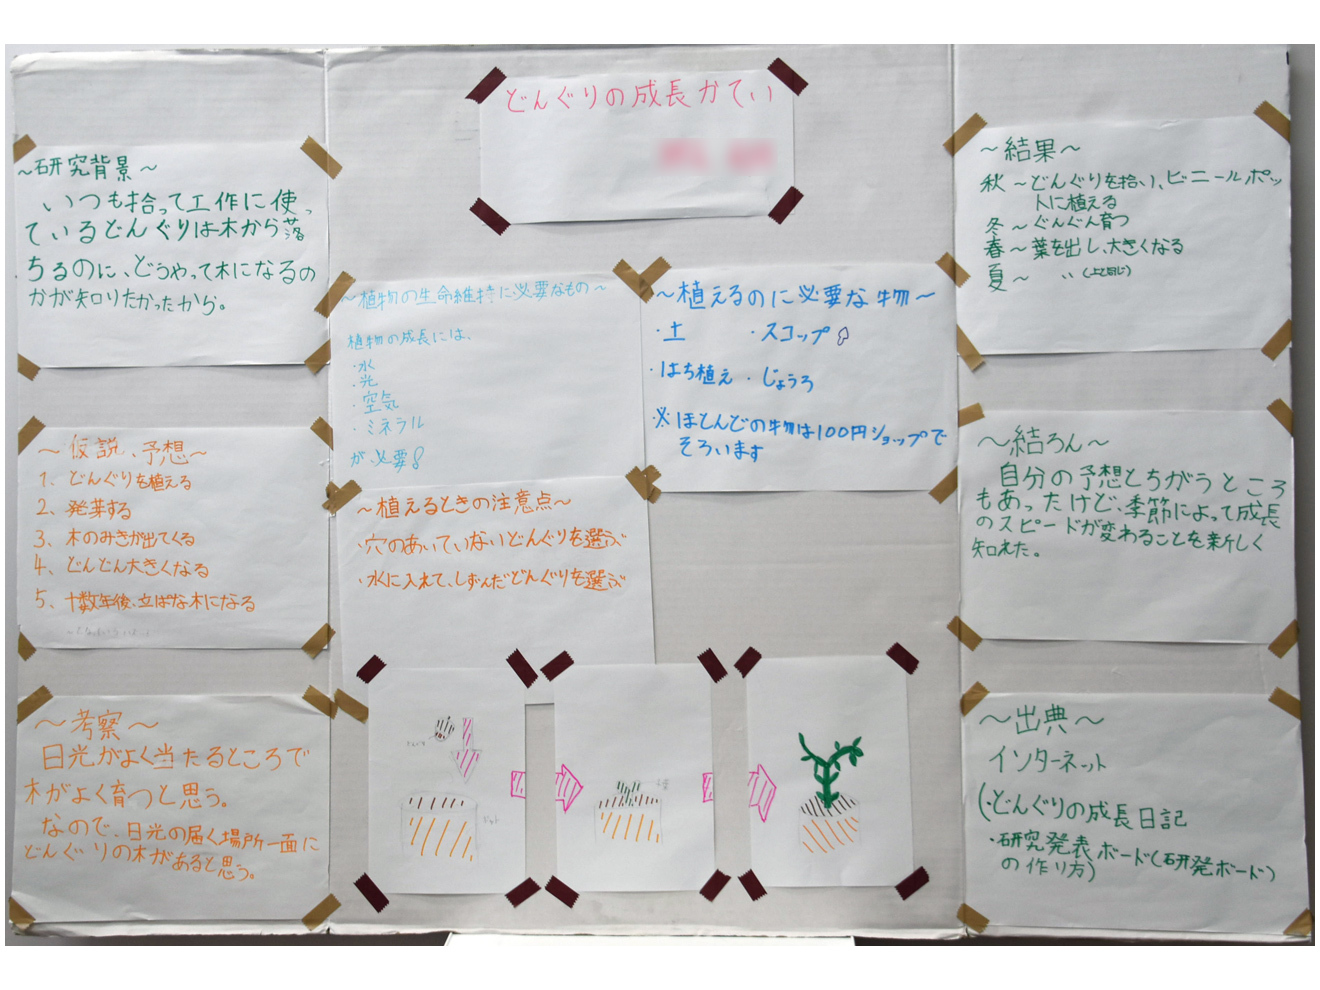 どんぐりの成長かてい
～研究背景～
いつも拾って工作に使っ
ているどんぐりは木から落
ちるのに、どうやって木になるの
かが知りたかったから。
～仮説、予想～
1、どんぐりを植える
2、発芽する
3、木のみきが出てくる
4、どんどん大きくなる
5、十数年後、立ぱな木になる
～考察～
日光がよく当たるところで
木がよく育つと思う。
なので、日光の届く場所一面に
どんぐりの木があると思う。
～植物の生命維持に必要なもの～
植物の成長には、
・水
・光
・空気
・ミネラル
が必要!
～植えるのに必要な物～
・土 ・スコップ
・はち植え ・じょうろ
※ほとんどの物は100円ショップで
そろいます
～植えるときの注意点～
・穴のあいていないどんぐりを選ぶ
・水に入れて、しずんだどんぐりを選ぶ
～結果～
秋～どんぐりを拾い、ビニールポッ
トに植える
冬～ぐんぐん育つ
春～葉を出し、大きくなる
夏～ 〃(上と同じ)
～結ろん～
自分の予想とちがうところ
もあったけど、季節によって成長
のスピードが変わることを新しく
知れた。
～出典～
インターネット
(・どんぐりの成長日記
・研究発表ボード(研発ボード)
の作り方)